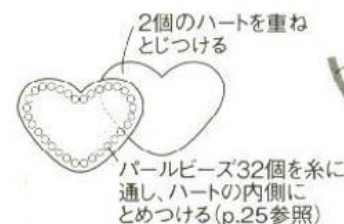 2個のハートを重ね
とじつける
パールビーズ32個を糸に
通し、ハートの内側に
とめつける(p.25参照)